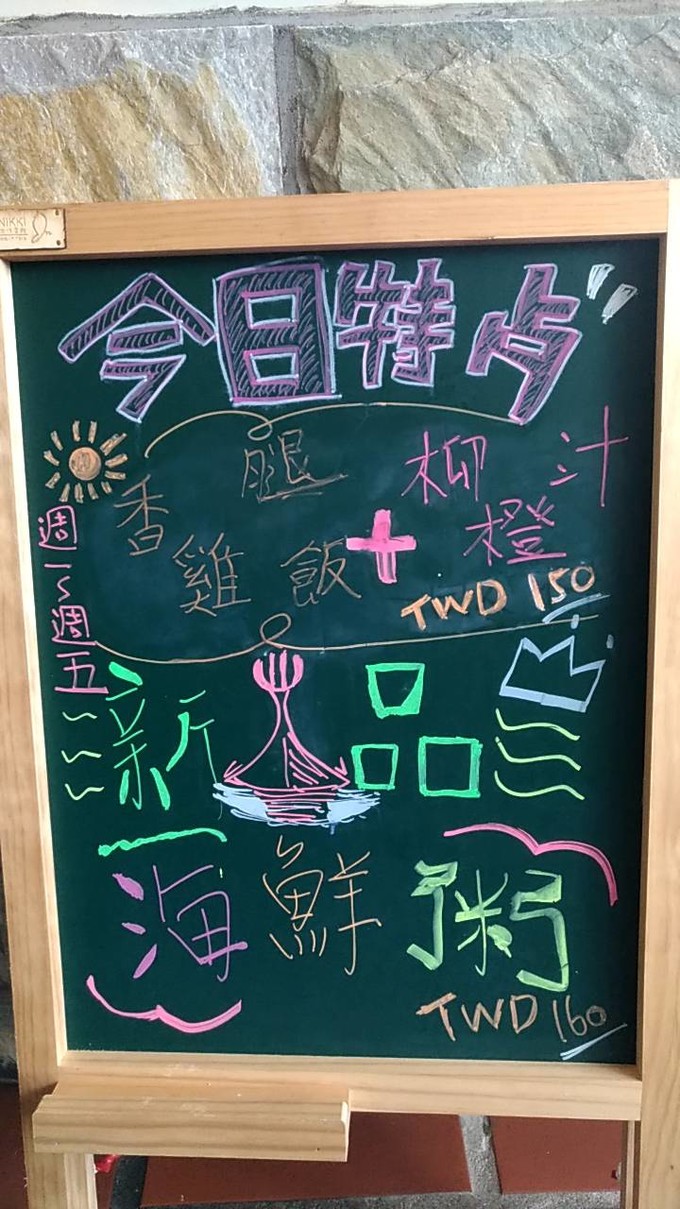 NIKKI
今日特点
香雞腿飯+柳橙汁
TWD 150
週一~週五
新品
海鮮粥
TWD 160